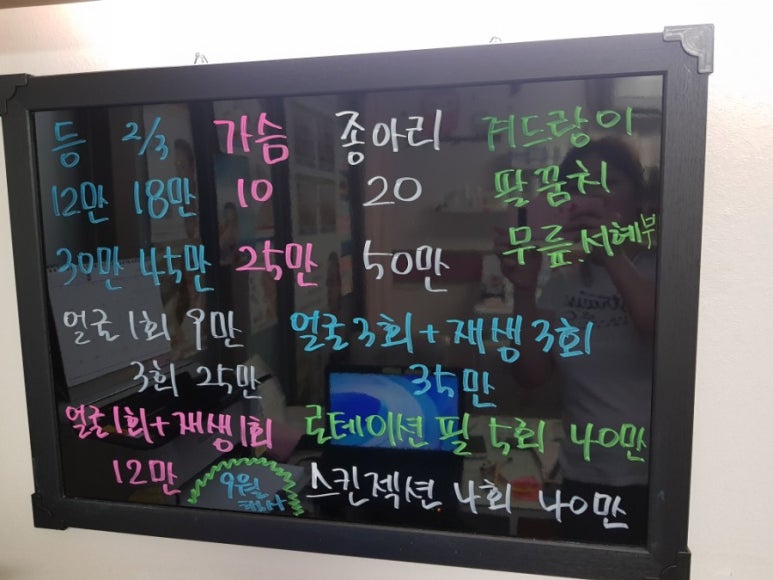 등 2/3 가슴 종아리 겨드랑이
12만 18만 10 20 팔꿈치
30만 45만 25만 50만 무릎.서혜부
얼굴 1회 9만 얼굴 3회 + 재생 3회
3회 25만 35만
얼굴 1회 + 재생 1회 로테이션 필 5회 40만
12만 9월 행사 스킨젝션 4회 40만